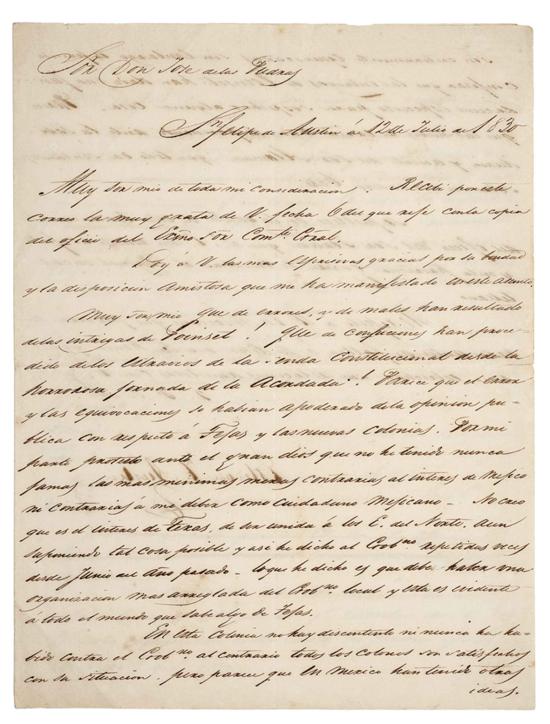 Sor. Don Jose de las Piedras
Sn. Felipe de Austin á 12 de Julio de 1830
Muy Sor mio de toda mi consideracion. Recibí por este
correo la muy grata de V. fecha 6 del que rije con la copia
del oficio del Exmo Sor Comte. Gral.
Doy á V. las mas espresivas gracias por su bondad
y la disposicion amistosa que me ha manifestado en este asunto.
Muy Sor mio que de errores, y de males han resultado
de las intrigas de Poinset! Que de confuciones han proce-
dido de los estravios de la senda Constitucional desde la
horrorosa jornada de la Acordada! Parice que el error
y las equivocaciones se habian apoderado de la opinion pu-
blica con respecto á Tejas y las nuevas colonias. Por mi
parte protesto ante el gran dios que no he tenido nunca
jamas las mas minimas miras contrarias al interes de Mejico
ni contrarias á mi deber como Cuidadano Mejicano - No creo
que es el interes de Texas, de ser unida a los E. del Norte, aun
suponiendo tal cosa posible y asi he dicho al Gobno. repetidas veces
desde Junio del Año pasado - lo que he dicho es que debe haber una
organizacion mas arreglada del Gobno. local y esta es evidente
á todo el mundo que sabe algo de Tejas.
En esta Colonia no hay descontento ni nunca ha ha-
bido contra el Gobno. al contrario todos los colonos son satisfechos
con su situacion, pero parece que en Mexico han tenido otras
ideas.